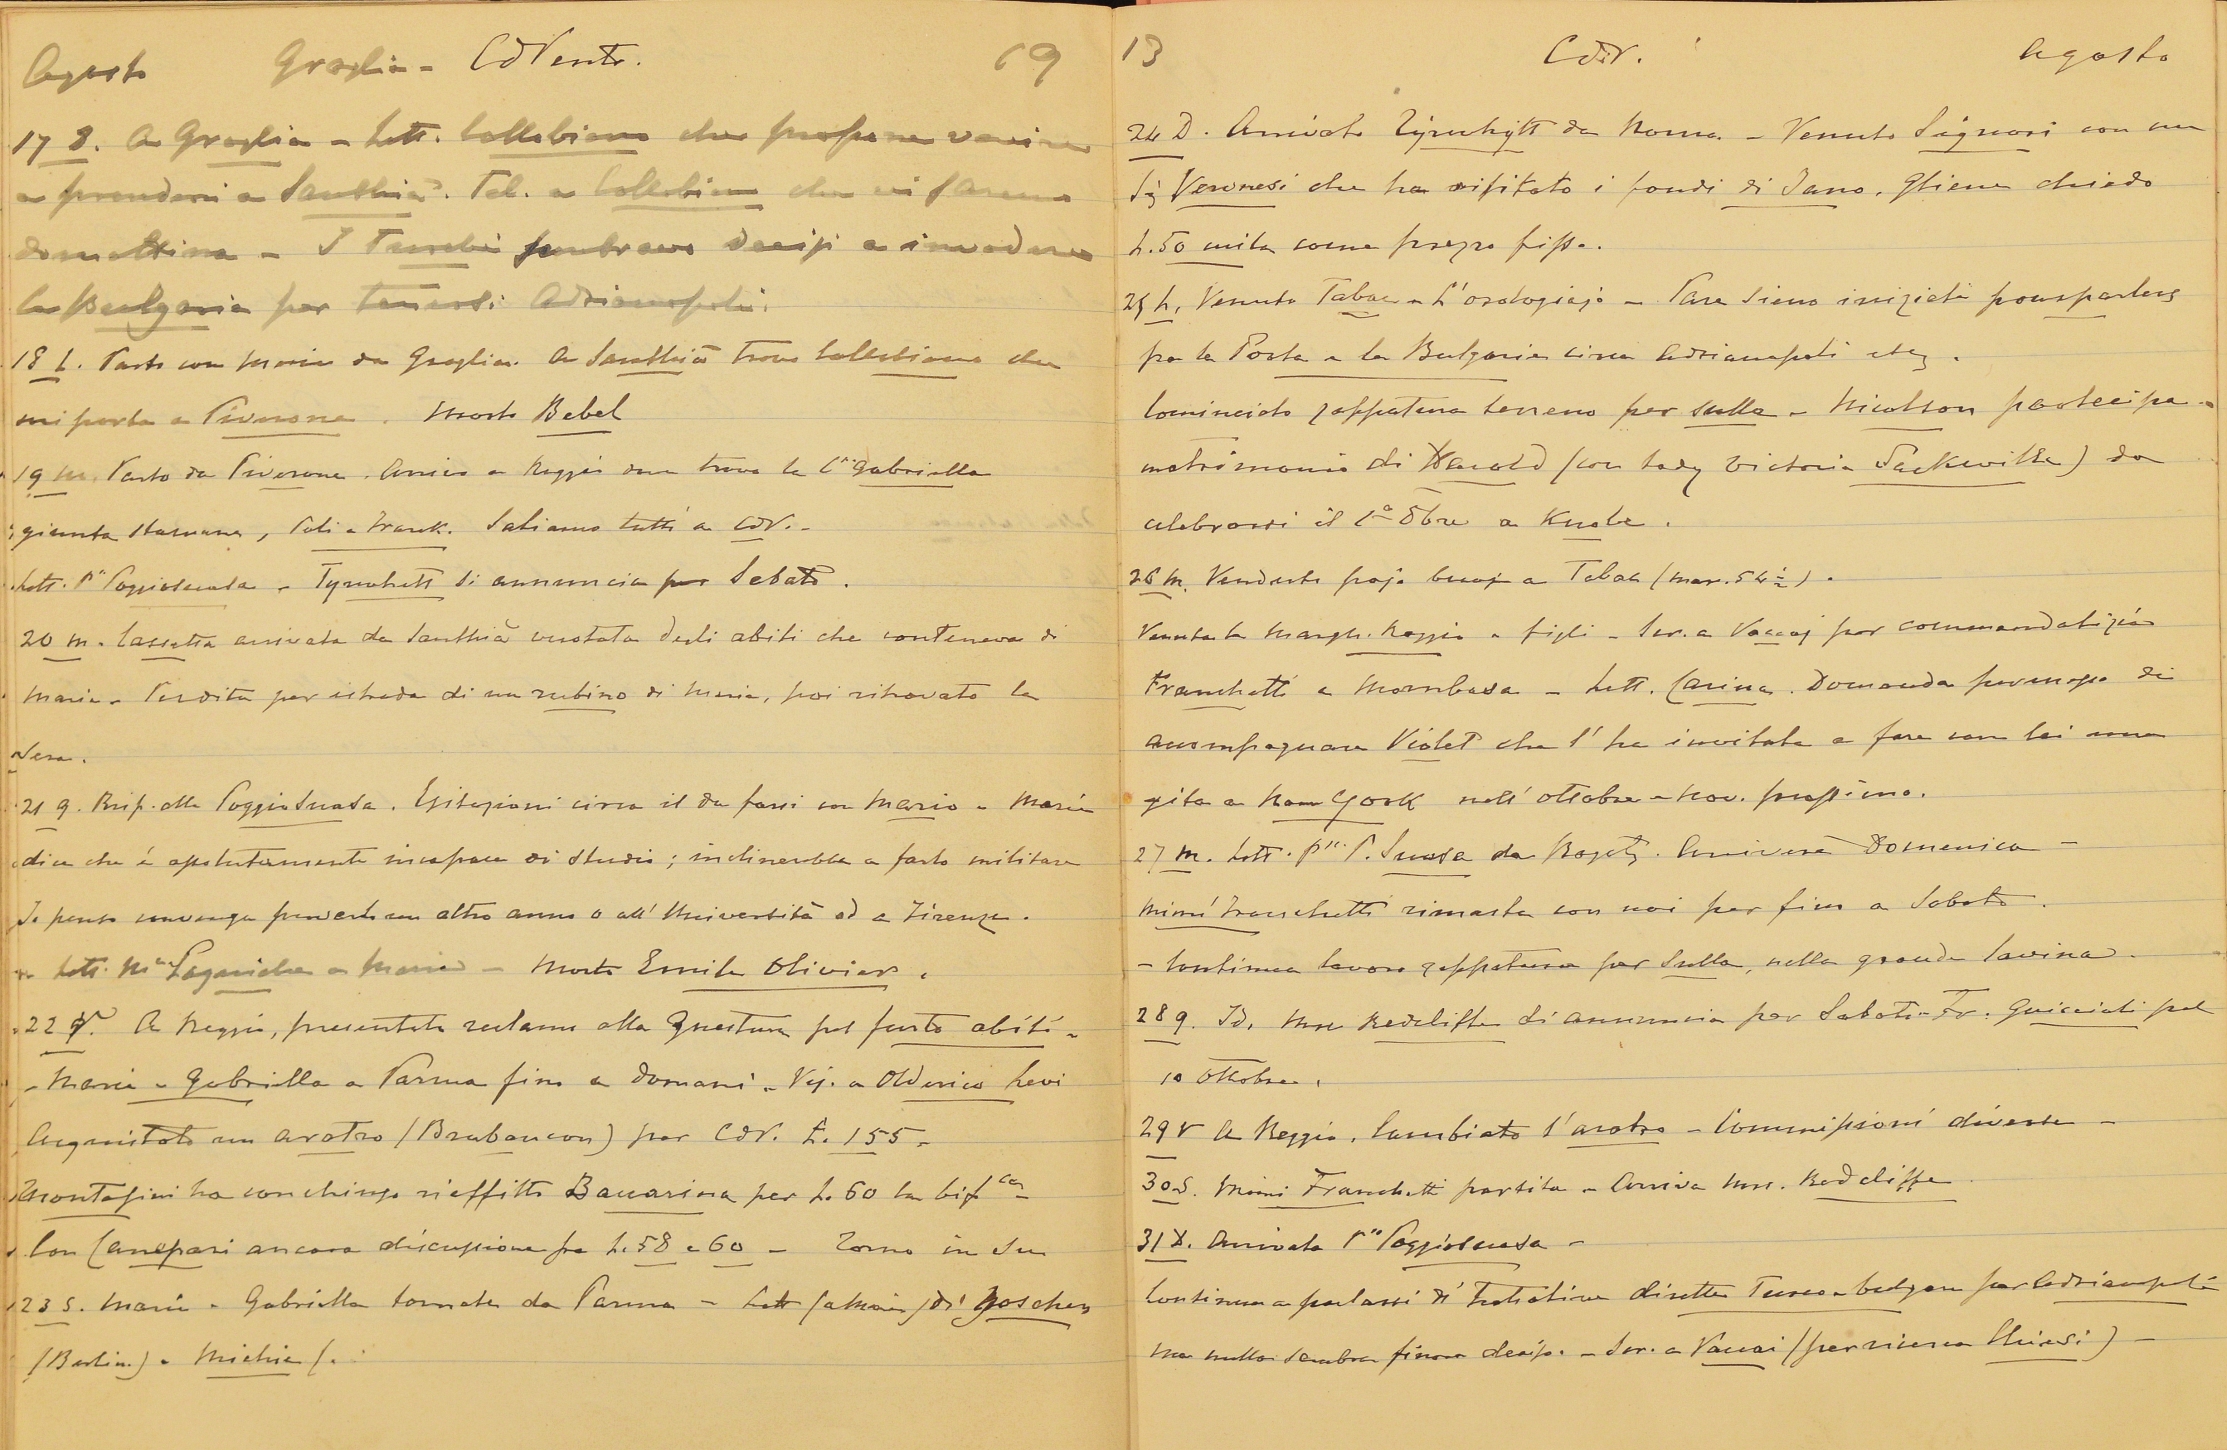 Agosto Graglia - CdVento. 19
17 D. A Graglia - Lett. Collobiano che propone venire
a prendermi a Santhià. Tel. a Collobiano che vi saremo
domattina - I Turchi sembrano decisi a invadere
la Bulgaria per tenersi Adrianopoli.
18 L. Parto con Maria da Graglia. A Santhià trovo Collobiano che
mi porta a Piverone. Morto Bebel
19 M. Parto da Piverone. Arrivo a Reggio ove trovo la Cssa Gabriella
giunta stamane, Poli e Franck. Saliamo tutti a CdV. -
Lett. Pssa Poggiosuasa - Tyrwhitt si annuncia per Sabato.
20 M. Cassetta arrivata da Santhià vuotata degli abiti che conteneva di
Maria - Perdita per istrada di un rubino di Maria, poi ritrovato la
sera.
21 G. Risp. alla PoggioSuasa. Esitazioni circa il da farsi con Mario - Maria
dice che è assolutamente incapace di studio; inclinerebbe a farlo militare
Io penso convenga provare un altro anno o all'Università od a Firenze.
Lett. Mme Laguiche a Maria - Morto Emile Olivier.
22 V. A Reggio, presentata reclamo alla Questura pel furto abiti -
- Maria e Gabriella a Parma fino a domani - Vis. a Olderico Levi
Acquistato un aratro (Brabancon) per CdV. L. 155 -
Montasini ha conchiuso riaffitto Baccarina per L. 60 la bifca -
Con Canepari ancora discussione fra L. 58 e 60 - Torno in su
23 S. Maria e Gabriella tornate da Parma - Lett (a Maria) di Goschen
(Berlin) - Michie (.
13 CdV. Agosto
24 D. Arrivato Tyrwhitt da Roma. - Venuto Signori con un
Sig Veronesi che ha visitato i fondi di Jano. Gliene chiedo
L. 50 mila come prezzo fisso.
25 L. Venuto Tabac e L'orologiajo - Pare sieno iniziati pourparlers
fra la Porta e la Bulgaria circa Adrianopoli etc.
Cominciato zappatura terreno per sulla - Nicolson partecipa
matrimonio di Harold (con Lady Victoria Sackville) da
celebrarsi il 1° 8bre a Knole.
26 M. Venduto pajo buoj a Tabac (mar. 54 ½).
Venuta la Margh. Reggio e figli - Scr. a Vaccaj per commendatizia
Franchetti a Mombasa - Lett. Carina. Domanda permesso di
accompagnare Violet che l'ha invitata a fare con lei una
gita a New York nell'ottobre - nov. prossimo.
27 M. Lett. Pssa P. Suasa da Rogatz. Arriverà Domenica -
Mimì Franchetti rimasta con noi per fino a Sabato.
- Continua lavoro zappatura per Sulla, nella grande lavina.
28 G. Id. Mrs Redcliffe si annuncia per Sabato - Fr. Guicciardi pel
10 ottobre.
29 V A Reggio. Cambiato l'aratro - Commissioni diverse -
30 S. Mimi Franchetti partita - Arriva Mrs. Redcliffe
31 D. Arrivata Pssa Poggiosuasa -
Continua a parlarsi di trattative dirette Turco-bulgare per Adrianopoli
ma nulla sembra finora deciso. - Scr. a Vaccai (per ricerca Chiesi) -